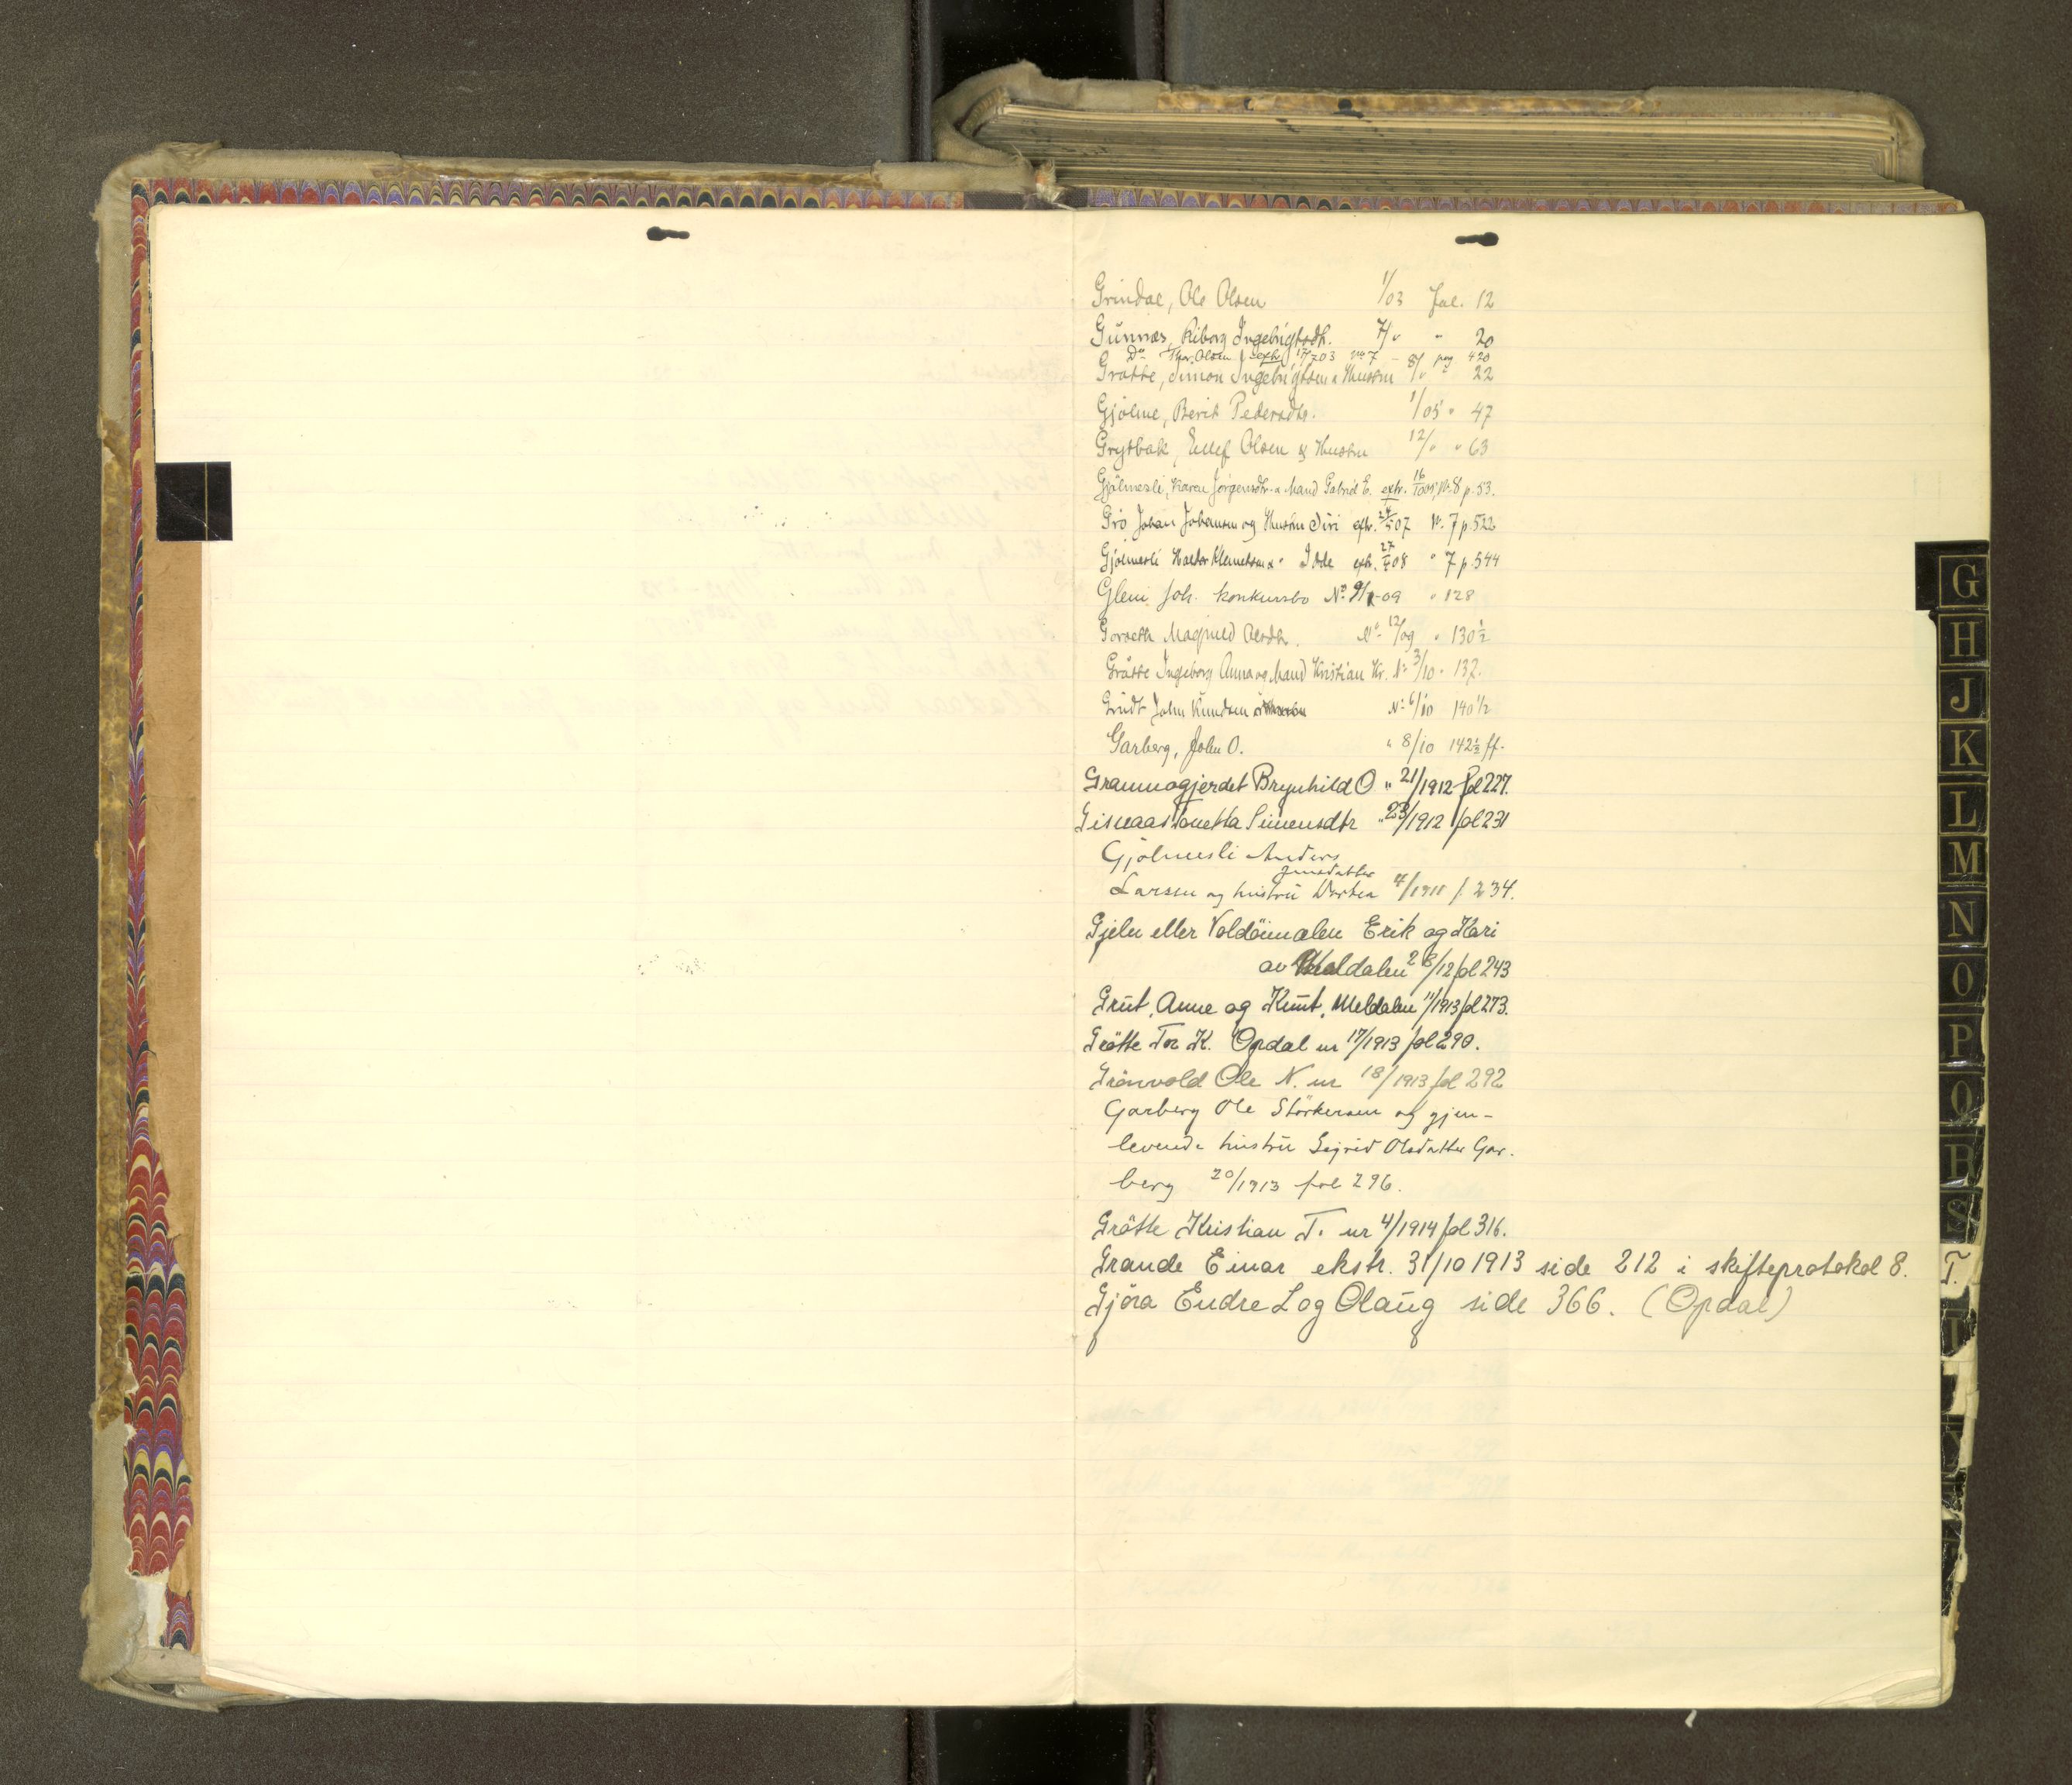 Grindal, Ole Olsen 1/03 fol. 12
Gunnæs, Riborg Ingebrigtsdtr. 7/" " 20
Do Thor Olsen extr. 17/7 03 No 7 pag 420
Gratte, Simon Ingebrigtsen & Hustru 8/" " 22
Gjølme, Berit Pedersdtr. 1/05 " 47
Grytbak, Ellef Olsen & Hustru 12/" " 63
Gjølmesli, Karen Jørgensdtr. & Mand Gabriel E. extr. p. 53.
Gro Johan Johansen og Hustru Siri extr. 07 No. 7 p. 522
Gjølmesli Halvor Klemetsen & " extr. 08 " 7 p. 544
Glein Joh. konkursbo No 9/-09 " 128
Magnild Olsdtr. No 12/09 " 130½
Gråtte Ingeborg Anna og Mand Kristian Kr. No 3/10 " 137.
Grudt John Knudsen No 6/10 140½
Garberg, John O. " 8/10 142½ ff.
Grannagjerdet Brynhild O " 21/1912 fol 227.
Gisnaas Tonetta Simensdtr " 23/1912 fol 231
Gjølmesli Anders
Jensdatter
Larsen og hustru Dortea 4/1911 f. 234.
Gjeln eller Voldøimælen Erik og Kari
av Meldalen 28/12 fol 243
Grut, Anne og Knut, Meldalen 11/1913 fol 273.
Gråtte Tor K. Opdal nr 17/1913 fol 290.
Grønvold Ole N. nr 18/1913 fol 292
Garberg Ole Størkersen og gjen-
levende hustru Sigrid Olsdatter Gar-
berg 20/1913 fol 296.
Gråtte Kristian T. nr 4/1914 fol 316.
Grande Einar ekstr. 31/10 1913 side 212 i skifteprotokol 8.
Gjøra Endre L og Olaug side 366. (Opdal)
G
H
J
K
L
M
N
O
P
Q
R
S
T.